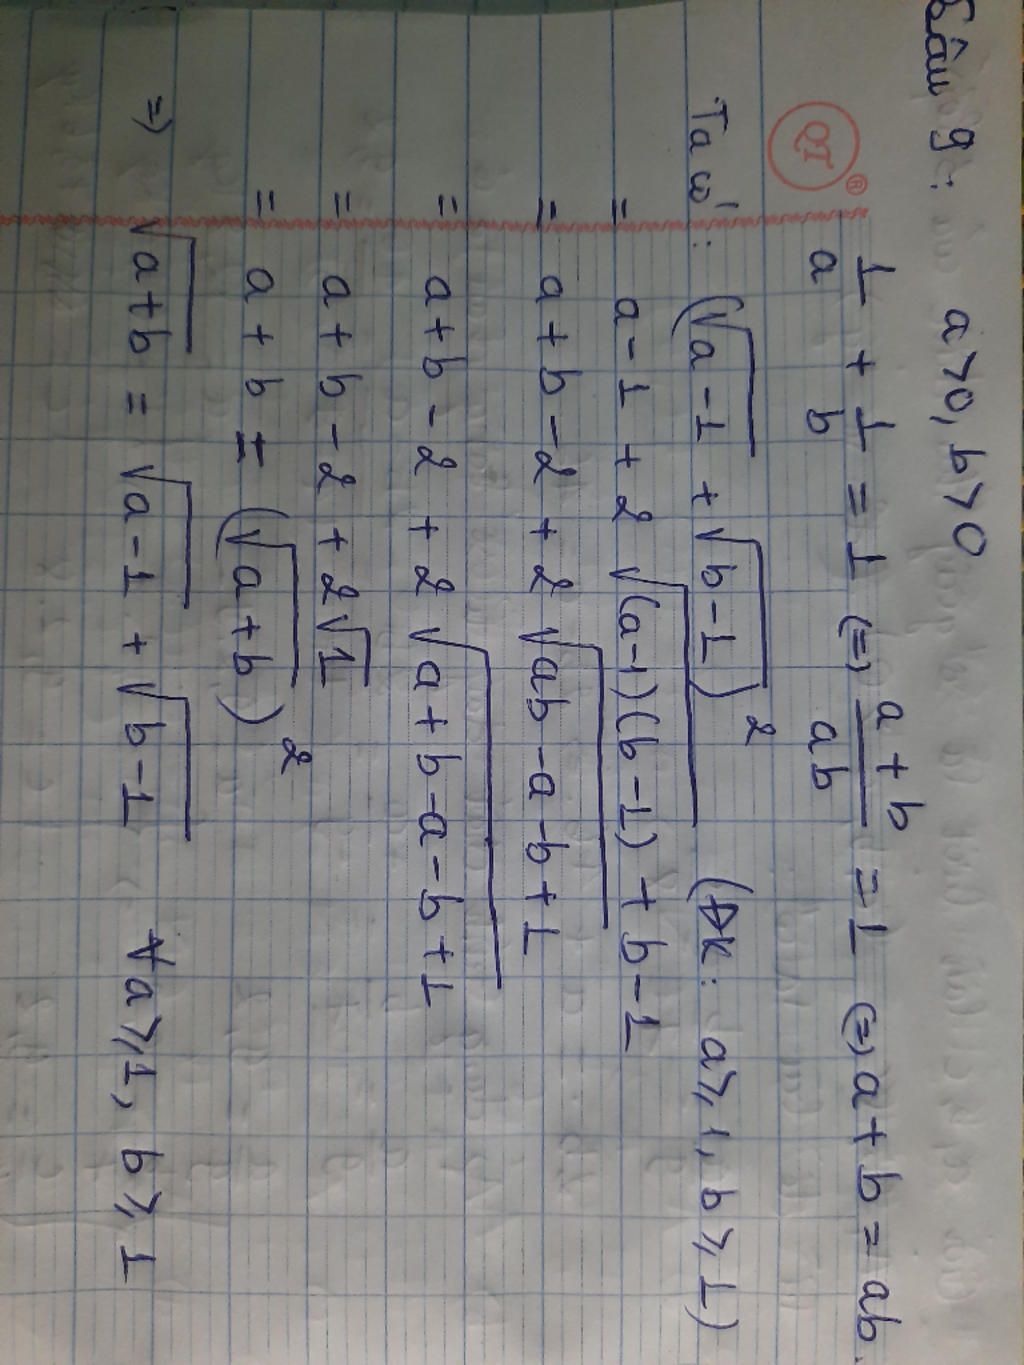 Câu 9: a>0, b>0
1/a + 1/b = 1 (=) a+b/ab = 1 (=) a+b = ab.
QT ®
Ta có: (√a-1 + √b-1)² (ĐK: a≥1, b≥1)
= a-1 + 2√(a-1)(b-1) + b-1
= a+b-2 + 2√ab-a-b+1
= a+b-2 + 2√a+b-a-b+1
= a+b-2 + 2√1
= a+b = (√a+b)²
=> √a+b = √a-1 + √b-1 ∀a≥1, b≥1